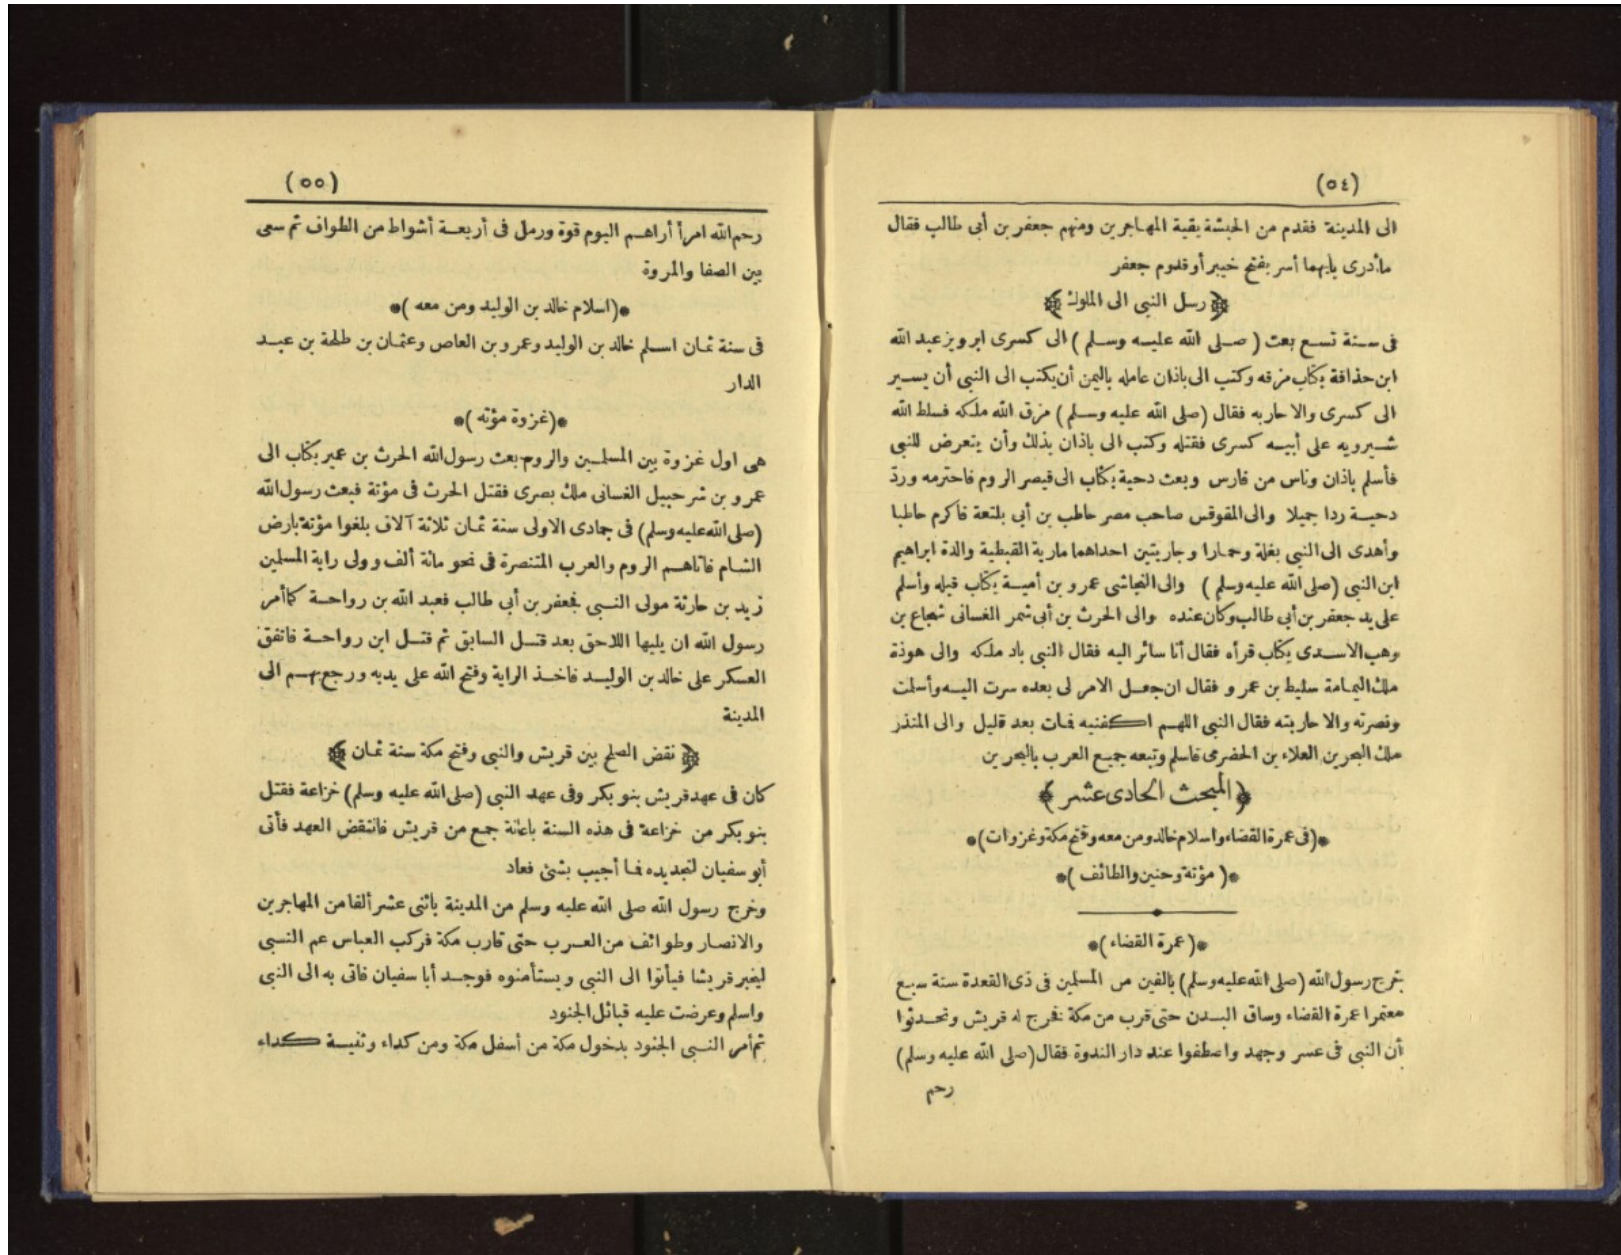 (٥٤)
الى المدينة فقدم من الحبشة بقية المهاجرين ومنهم جعفر بن أبى طالب فقال
ماأدرى بأيهما أسر بفتح خيبر أو قدوم جعفر
﴿ رسل النبى الى الملوك ﴾
فى سنة تسع بعث ( صلى الله عليه وسلم ) الى كسرى ابرويز عبد الله
ابن حذافة بكتاب مزقه وكتب الى باذان عامله باليمن أن يكتب الى النبى أن يسير
الى كسرى والا حاربه فقال (صلى الله عليه وسلم ) مزق الله ملكه فسلط الله
شيرويه على أبيه كسرى فقتله وكتب الى باذان بذلك وأن يتعرض للنبى
فأسلم باذان وناس من فارس وبعث دحية بكتاب الى قيصر الروم فاحترمه وردّ
دحية ردا جميلا والى المقوقس صاحب مصر حاطب بن أبى بلتعة فاكرم حاطبا
وأهدى الى النبى بغلة وحمارا وجاريتين احداهما مارية القبطية والدة ابراهيم
ابن النبى (صلى الله عليه وسلم ) والى النجاشى عمرو بن أمية بكتاب قبله وأسلم
على يد جعفر بن أبى طالب وكان عنده والى الحرث بن أبى شمر الغسانى شجاع بن
وهب الاسدى بكتاب قرأه فقال أنا سائر اليه فقال النبى باد ملكه والى هوذة
ملك اليمامة سليط بن عمرو فقال ان جعل الامر لى بعده سرت اليه وأسلمت
ونصرته والا حاربته فقال النبى اللهم اكفنيه فمات بعد قليل والى المنذر
ملك البحرين العلاء بن الحضرمى فاسلم وتبعه جميع العرب بالبحرين
﴿ المبحث الحادى عشر ﴾
*(فى عمرة القضاء واسلام خالد ومن معه وفتح مكة وغزوات)*
*( مؤتة وحنين والطائف )*
*(عمرة القضاء)*
خرج رسول الله (صلى الله عليه وسلم) بالفين من المسلمين فى ذى القعدة سنة سبع
معتمرا عمرة القضاء وساق البدن حتى قرب من مكة فخرج له قريش وتحدثوا
أن النبى فى عسر وجهد واصطفوا عند دار الندوة فقال (صلى الله عليه وسلم)
رحم
(٥٥)
رحم الله امرأ أراهم اليوم قوة ورمل فى أربعة أشواط من الطواف ثم سعى
بين الصفا والمروة
*(اسلام خالد بن الوليد ومن معه )*
فى سنة ثمان اسلم خالد بن الوليد وعمرو بن العاص وعثمان بن طلحة بن عبد
الدار
*(غزوة مؤته )*
هى اول غزوة بين المسلمين والروم بعث رسول الله الحرث بن عمير بكتاب الى
عمرو بن شرحبيل الغسانى ملك بصرى فقتل الحرث فى مؤتة فبعث رسول الله
(صلى الله عليه وسلم) فى جمادى الاولى سنة ثمان ثلاثة آلاف بلغوا مؤتة بارض
الشام فاتاهم الروم والعرب المتنصرة فى نحو مائة ألف وولى راية المسلمين
زيد بن حارثة مولى النبى فجعفر بن أبى طالب فعبد الله بن رواحة كما أمر
رسول الله ان يليها اللاحق بعد قتل السابق ثم قتل ابن رواحة فاتفق
العسكر على خالد بن الوليد فاخذ الراية وفتح الله على يديه ورجع بهم الى
المدينة
﴿ نقض الصلح بين قريش والنبى وفتح مكة سنة ثمان ﴾
كان فى عهد قريش بنو بكر وفى عهد النبى (صلى الله عليه وسلم) خزاعة فقتل
بنو بكر من خزاعة فى هذه السنة باعانة جمع من قريش فانتقض العهد فأتى
أبو سفيان لتجديده فما أجيب بشئ فعاد
وخرج رسول الله صلى الله عليه وسلم من المدينة باثنى عشر ألفا من المهاجرين
والانصار وطوائف من العرب حتى قارب مكة فركب العباس عم النبى
ليخبر قريشا فيأتوا الى النبى ويستأمنوه فوجد أبا سفيان فاتى به الى النبى
واسلم وعرضت عليه قبائل الجنود
ثم أمر النبى الجنود بدخول مكة من أسفل مكة ومن كداء وثنية كداء